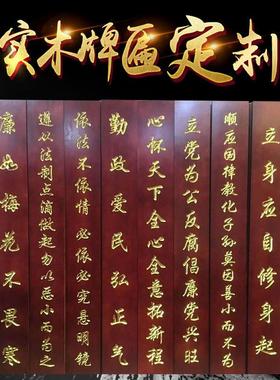 实木牌匾定制
立身应自修身起
顺应国律教化子孙莫因善小而不为
立党为公反腐倡廉党兴旺
心怀天下全心全意拓新程
勤政爱民弘正气
依法不依情必依必究悬明镜
遵以法制点滴做起勿以恶小而为之
廉如梅花不畏寒